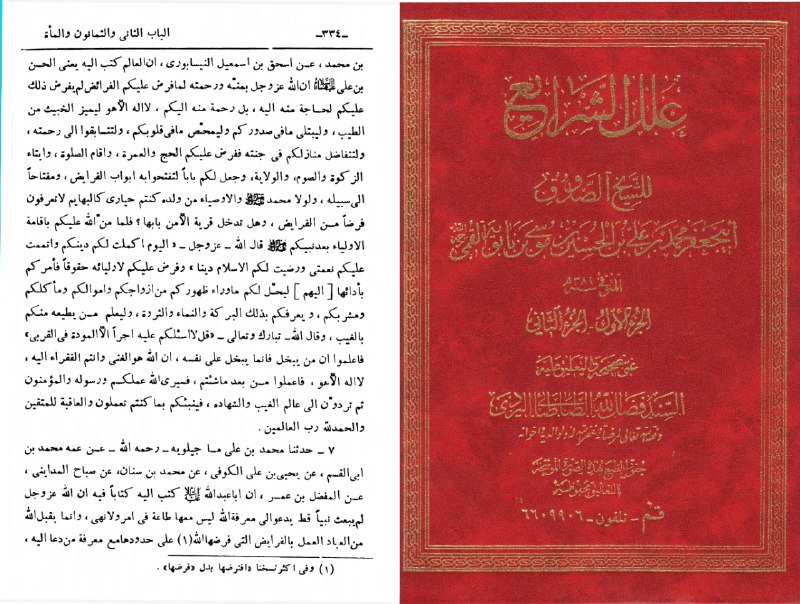 -٣٣٤-
الباب الثانى والثمانون والمأة
بن محمد، عـن اسحق بن اسمعيل النيسابورى، ان العالم كتب اليه يعنى الحسن
بن على عليه السلام ان الله عزوجل بمنّه ورحمته لما فرض عليكم الفرائض لم يفرض ذلك
عليكم لحاجة منه اليه، بل رحمة منه اليكم، لا اله الا هو ليميز الخبيث من
الطيب، وليبتلى مافى صدوركم وليمحّص مافى قلوبكم، ولتتسابقوا الى رحمته،
ولتتفاضل منازلكم فى جنته ففرض عليكم الحج والعمرة، واقام الصلوة، وايتاء
الزكوة والصوم، والولاية، وجعل لكم باباً لتفتحوا به ابواب الفرايض، ومفتاحاً
الى سبيله، ولولا محمد ﷺ والاوصياء من ولده كنتم حيارى كالبهايم لاتعرفون
فرضاً مـن الفرايض، وهل تدخل قرية الا من بابها؟ فلما مـنّ الله عليكم باقامة
الاولياء بعد نبيكم ﷺ قال الله ـ عزوجل ـ « اليوم اكملت لكم دينكم واتممت
عليكم نعمتى ورضيت لكم الاسلام دينا » وفرض عليكم لاوليائه حقوقاً فأمركم
بأدائها [ اليهم ] ليحلّ لكم ماوراء ظهوركم من ازواجكم واموالكم ومأكلكم
ومشربكم، و يعرفكم بذلك البركة والنماء والثروة، وليعلم مـن يطيعه منكم
بالغيب، وقال الله ـ تبارك وتعالى ـ «قل لا اسئلكم عليه اجراً الا المودة فى القربى»
فاعلموا ان من يبخل فانما يبخل على نفسه، ان الله هو الغنى وانتم الفقراء اليه،
لا اله الا هو، فاعملوا مـن بعد ماشئتم، فسيرى الله عملكم ورسوله والمؤمنون
ثم تردون الى عالم الغيب والشهاده، فينبئكم بما كنتم تعملون والعاقبة للمتقين
والحمدلله رب العالمين.
٧ ـ حدثنا محمد بن على ما جيلويه ـ رحمه الله ـ عـن عمه محمد بن
ابى القسم، عن يحيى بن على الكوفى، عن محمد بن سنان، عن صباح المداينى،
عـن المفضل بن عمر، ان اباعبدالله عليه السلام كتب اليه كتاباً فيه ان الله عزوجل
لم يبعث نبياً قط يدعو الى معرفة الله ليس معها طاعة فى امر ولانهى، وانما يقبل الله
من العباد العمل بالفرايض التى فرضها الله (١) على حدودها مع معرفة من دعا اليه،
(١) وفى اكثر نسخنا «افترضها بدل «فرضها».
علل الشرايع
للشيخ الصدوق
أبي جعفر محمد بن علي بن الحسين بن موسى بن بابويه القمي
المتوفى ٣٨١
الجزء الاول ـ الجزء الثاني
عني بتصحيحه والتعليق عليه
السيد فضل الله الطباطبائي اليزدي
قـم ـ تلفون ـ ٦٦٠٩٩٠٦